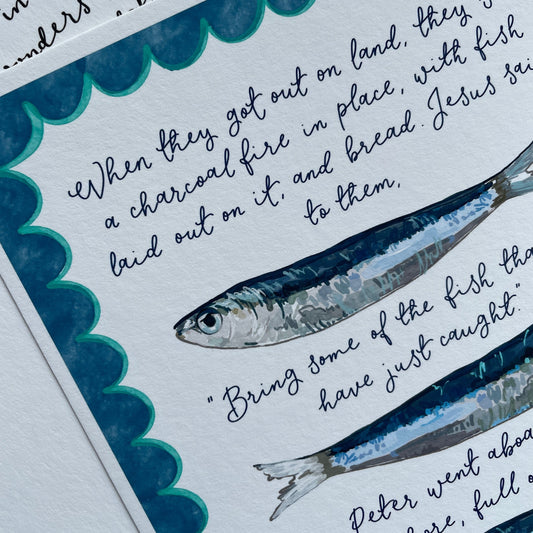 in
unders
When they got out on land, they
a charcoal fire in place, with fish
laid out on it, and bread. Jesus
to them,
"Bring some of the fish
have just caught."
Peter went
full